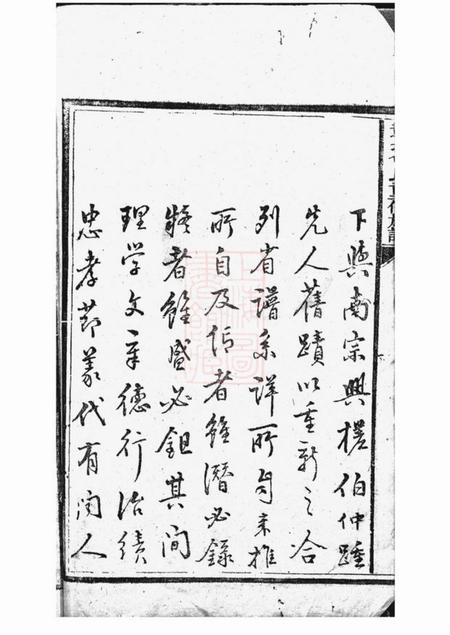 下與南宗興樸伯仲踵
先人舊蹟以重新之合
列省譜系詳所自來推
所自及信者雖潛必錄
疑者雖盛必鉏其間
理学文章德行治績
忠孝節義代有闻人